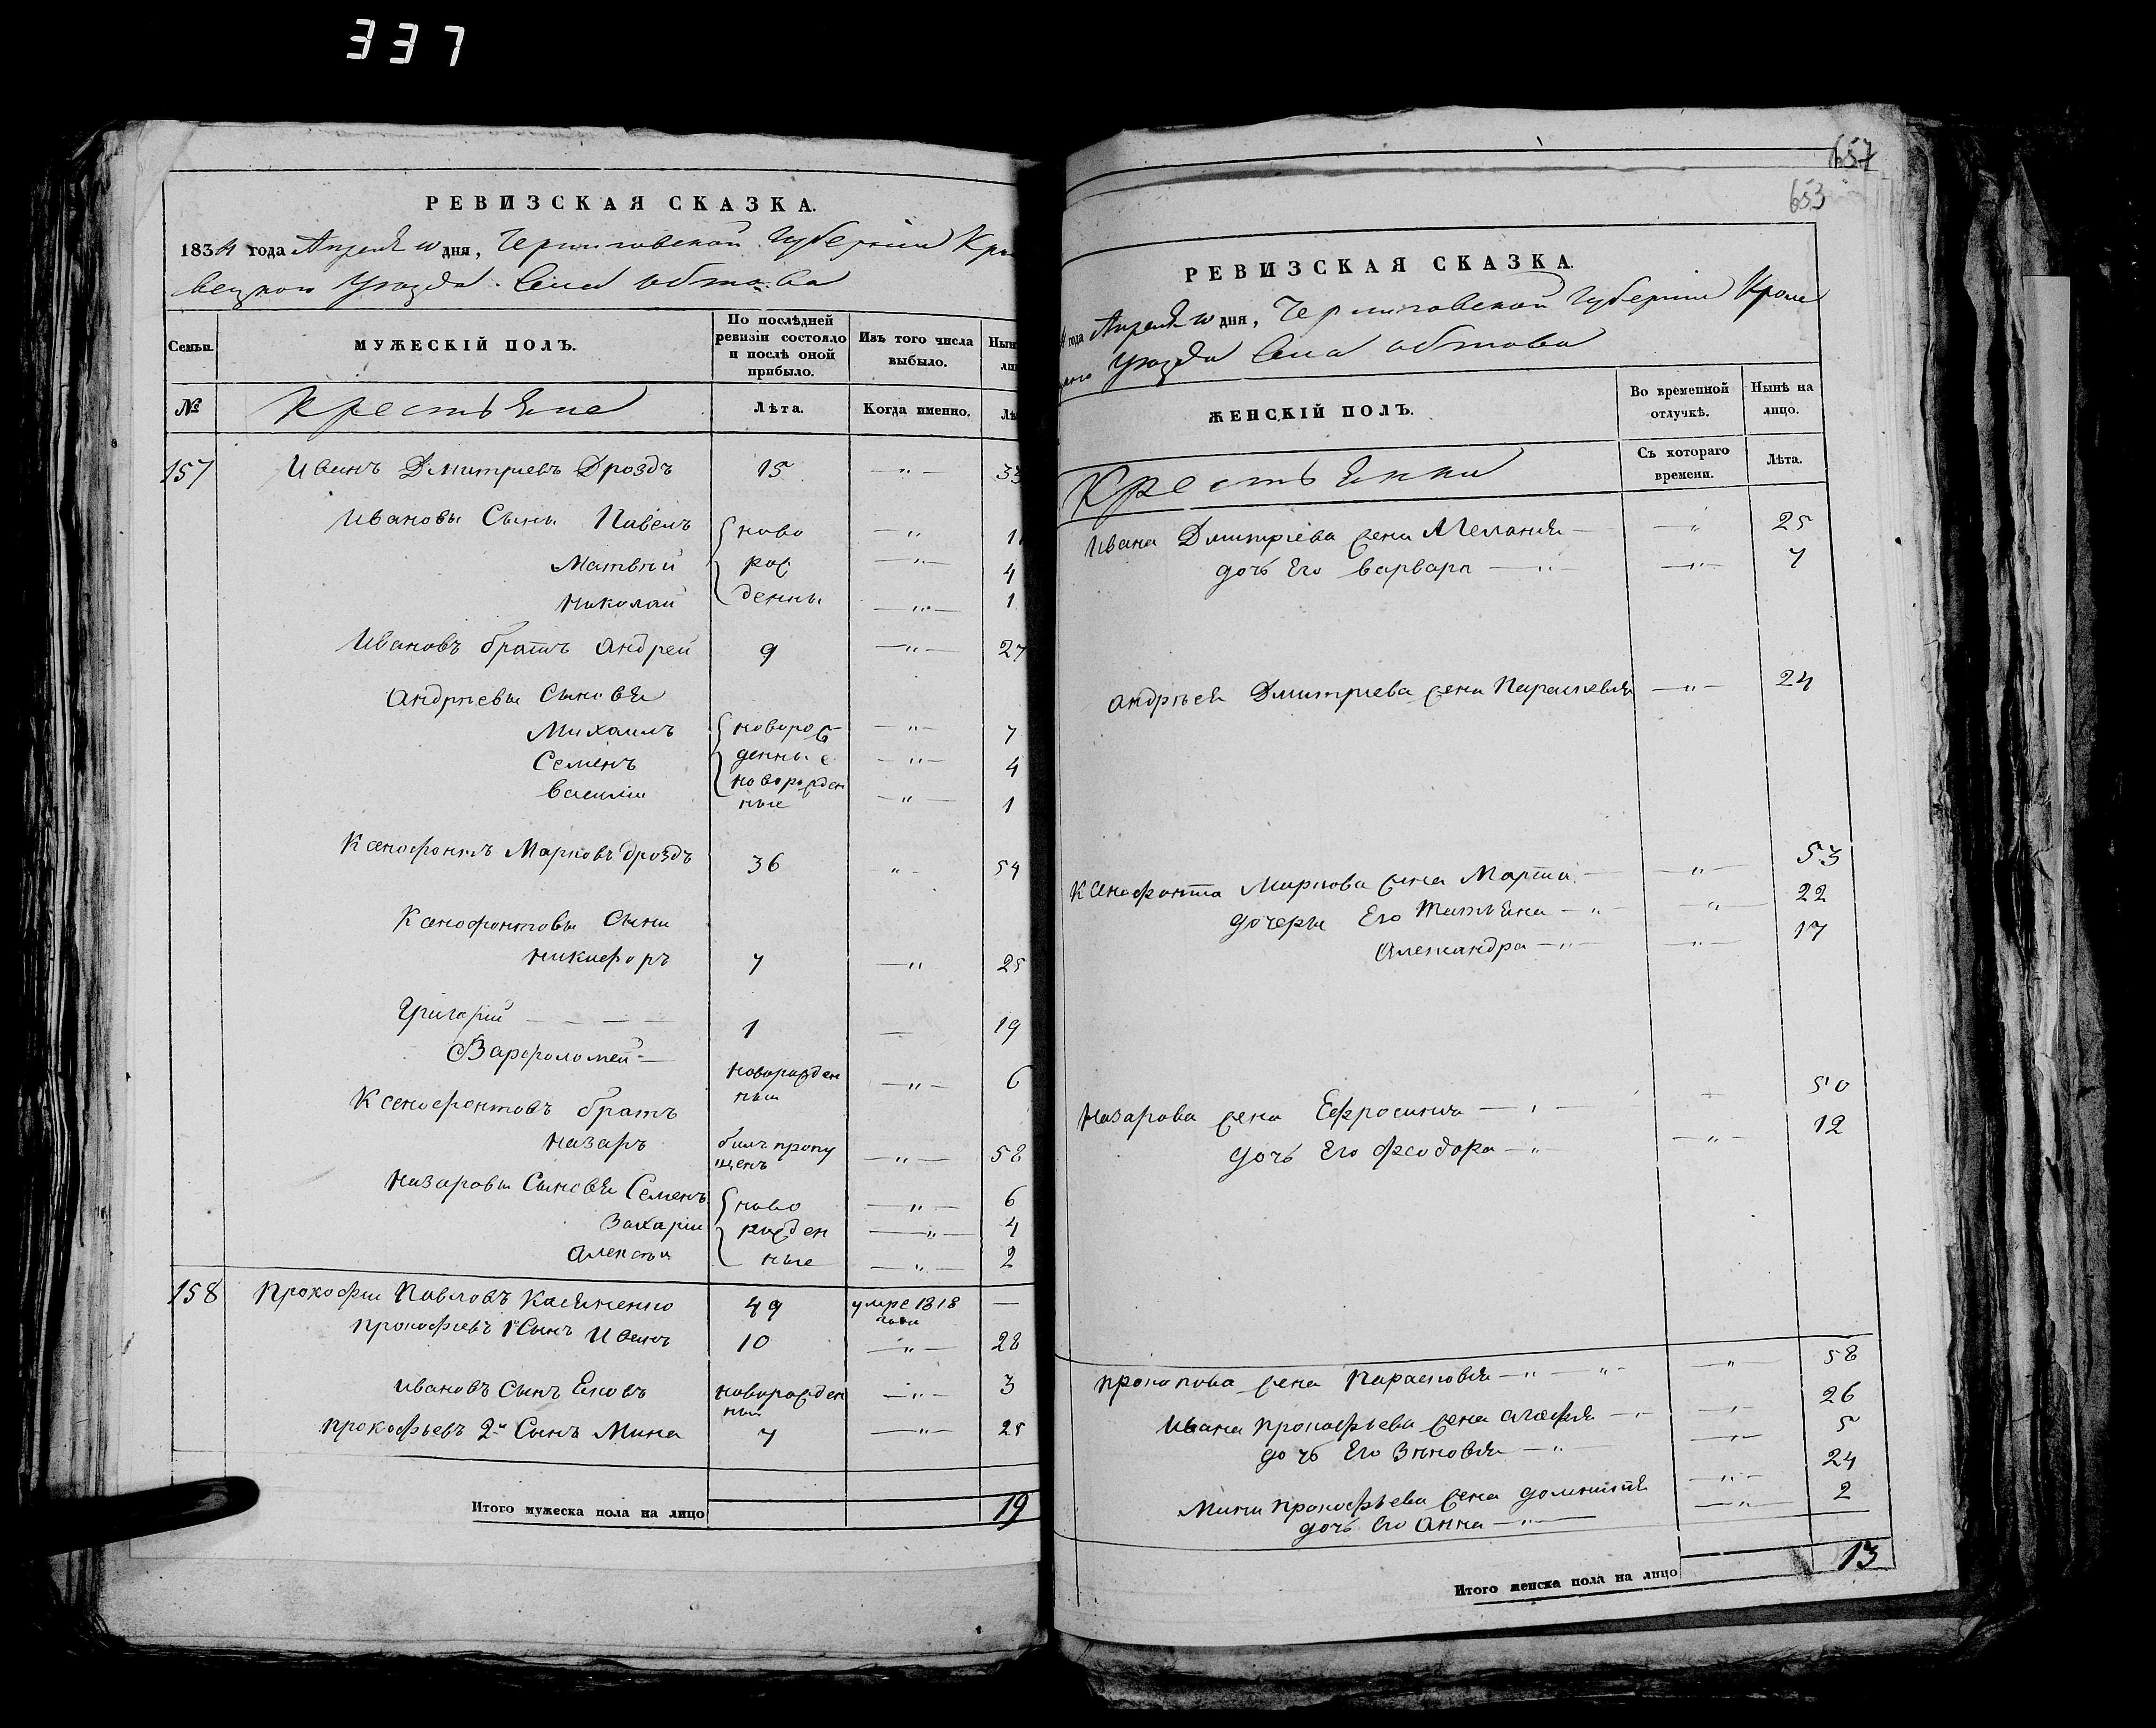 337
РЕВИЗСКАЯ СКАЗКА.
1834 года Апреля дня, Черниговской Губерніи Кро
вецкого Уезда Села Обтова
Семьи.
МУЖЕСКІЙ ПОЛЪ.
По послѣдней ревизіи состояло и послѣ оной прибыло.
Изъ того числа выбыло.
Нын
ли
№
Крестьяне
Лѣта.
Когда именно.
Лѣ
157 Иванъ Дмитриевъ Дроздъ 15 — " — 33
Ивановы Сыны Павелъ ново — " — 11
Матвѣй рож — " — 4
Николай денны — " — 1
Ивановъ братъ Андрей 9 — " — 27
Андрѣевы Сыновья
Михаилъ новорож — " — 7
Семенъ денные — " — 4
Василіи новорожден ные — " — 1
Ксенофонтъ Марковъ Дроздъ 36 " — 54
Ксенофонтовы Сыны
Никифоръ 7 — " 25
Григорій — — — 1 — 19
Варфоломей — новорожден ный — " — 6
Ксенофонтовъ братъ
Назаръ былъ пропу щенъ — " — 58
Назаровы Сыновья Семенъ ново — " — 6
Захаріи рожден — " — 4
Алексѣи ные — " — 2
158 Прокофіи Павловъ 49 умре 1818 —
Прокофіевъ 1й Сынъ Иванъ 10 — " — 28
Ивановъ Сынъ Яковъ новорожден ный — " — 3
Прокофьевъ 2й Сынъ Мина 7 — " — 25
Итого мужеска пола на лицо 19
657
653
РЕВИЗСКАЯ СКАЗКА.
4 года Апреля дня, Черниговской Губерніи Кроле
Уезда Села Обтова
ЖЕНСКІЙ ПОЛЪ.
Во временной отлучкѣ.
Нынѣ на лицо.
Крестьянки
Съ котораго времени.
Лѣта.
Ивана Дмитріева жена Меланія — — " 25
дочь Его Варвара — " — — " — 7
Андрѣея Дмитриева жена Параскевия — " — 24
Ксенофонта Маркова жена Марта — — " — 53
дочери Его Татьяна — " — — " — 22
Александра — " — — " — 17
Назарова жена Ефросинья — " — 50
дочь Его Феодора — " — — " — 12
Прокопова жена Парасковия — " — " — — " — 58
Ивана Прокофьева жена Агафия — " — — " — 26
дочь Его Зѣновия — " — — " — 5
Мины Прокофьева жена — " — 24
дочь Его Анна — " — — " — 2
Итого женска пола на лицо 13